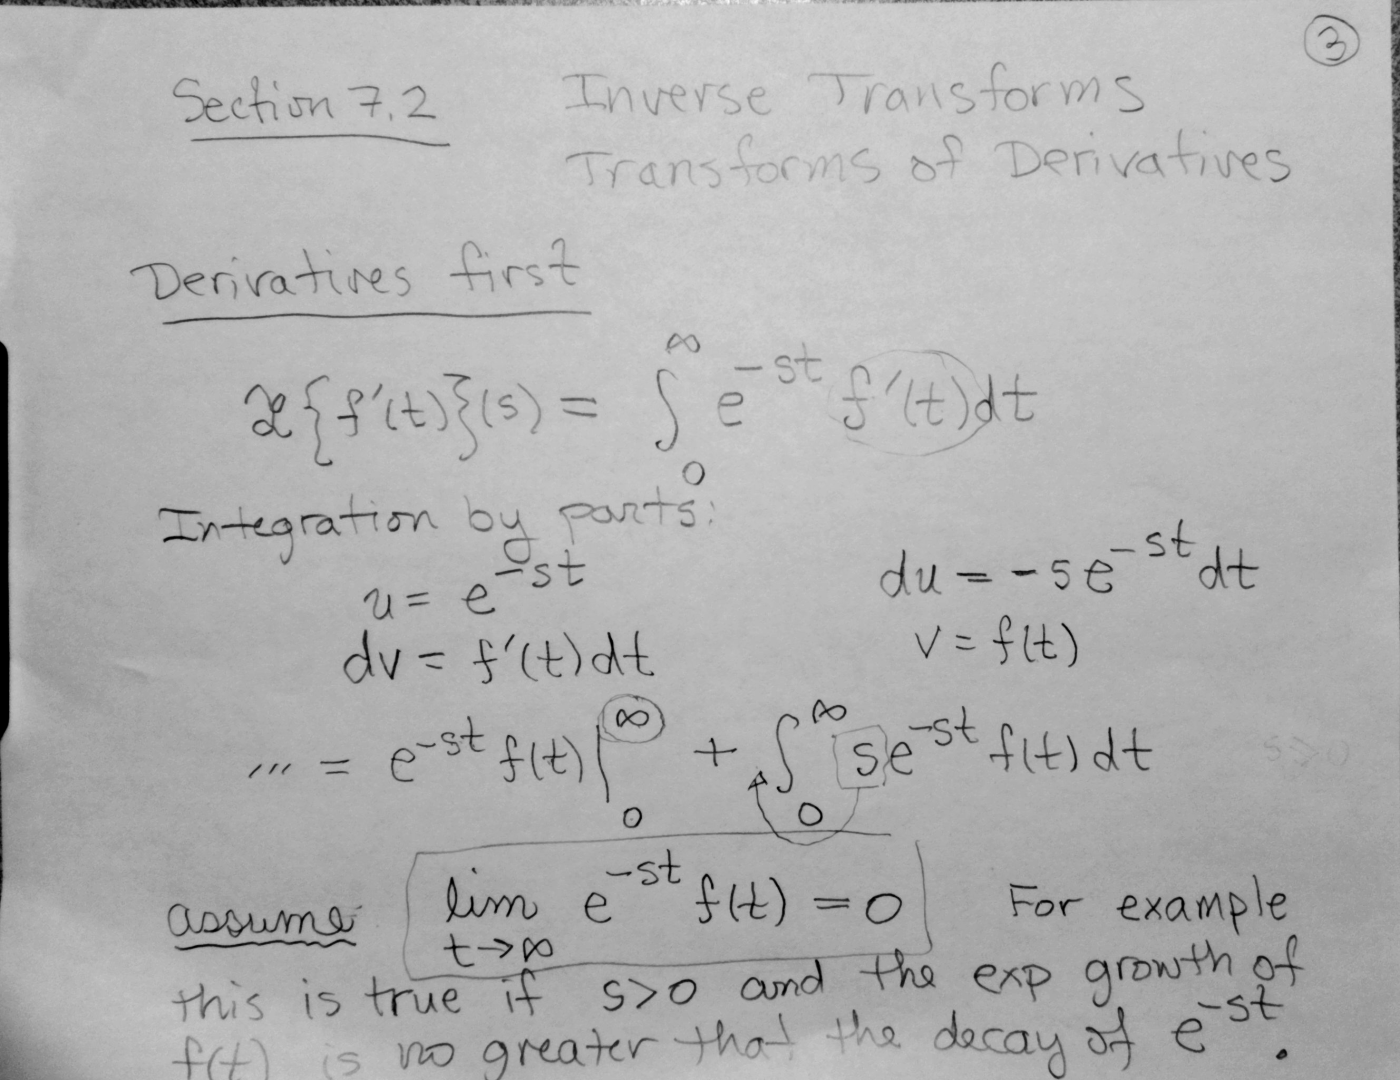 ③
Section 7.2 Inverse Transforms
Transforms of Derivatives
Derivatives first
ℒ{f'(t)}(s) = ∫₀^∞ e^{-st} f'(t)dt
Integration by parts:
u = e^{-st} du = -se^{-st}dt
dv = f'(t)dt v = f(t)
... = e^{-st} f(t)|₀^∞ + ∫₀^∞ se^{-st} f(t)dt s>0
assume lim_{t→∞} e^{-st} f(t) = 0 For example
this is true if s>0 and the exp growth of
f(t) is no greater that the decay of e^{-st}.